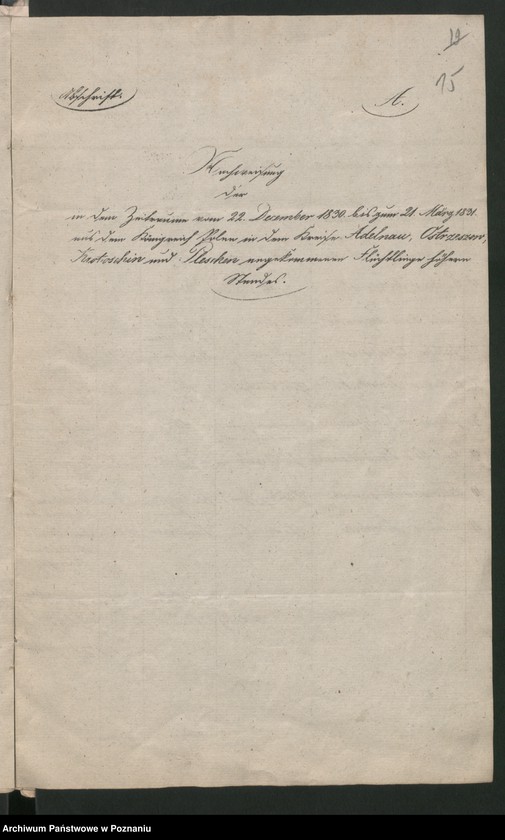 19
15
Abschrift.
A.
Nachweisung
der
in dem Zeitraume vom 22. Dezember 1830. bis zum 21. März 1831.
aus dem Königreich Polen in dem Kreise Adelnau, Ostrzeszow,
Krotoschin und Pleschen angekommenen Flüchtlinge höhern
Standes.
Archiwum Państwowe w Poznaniu